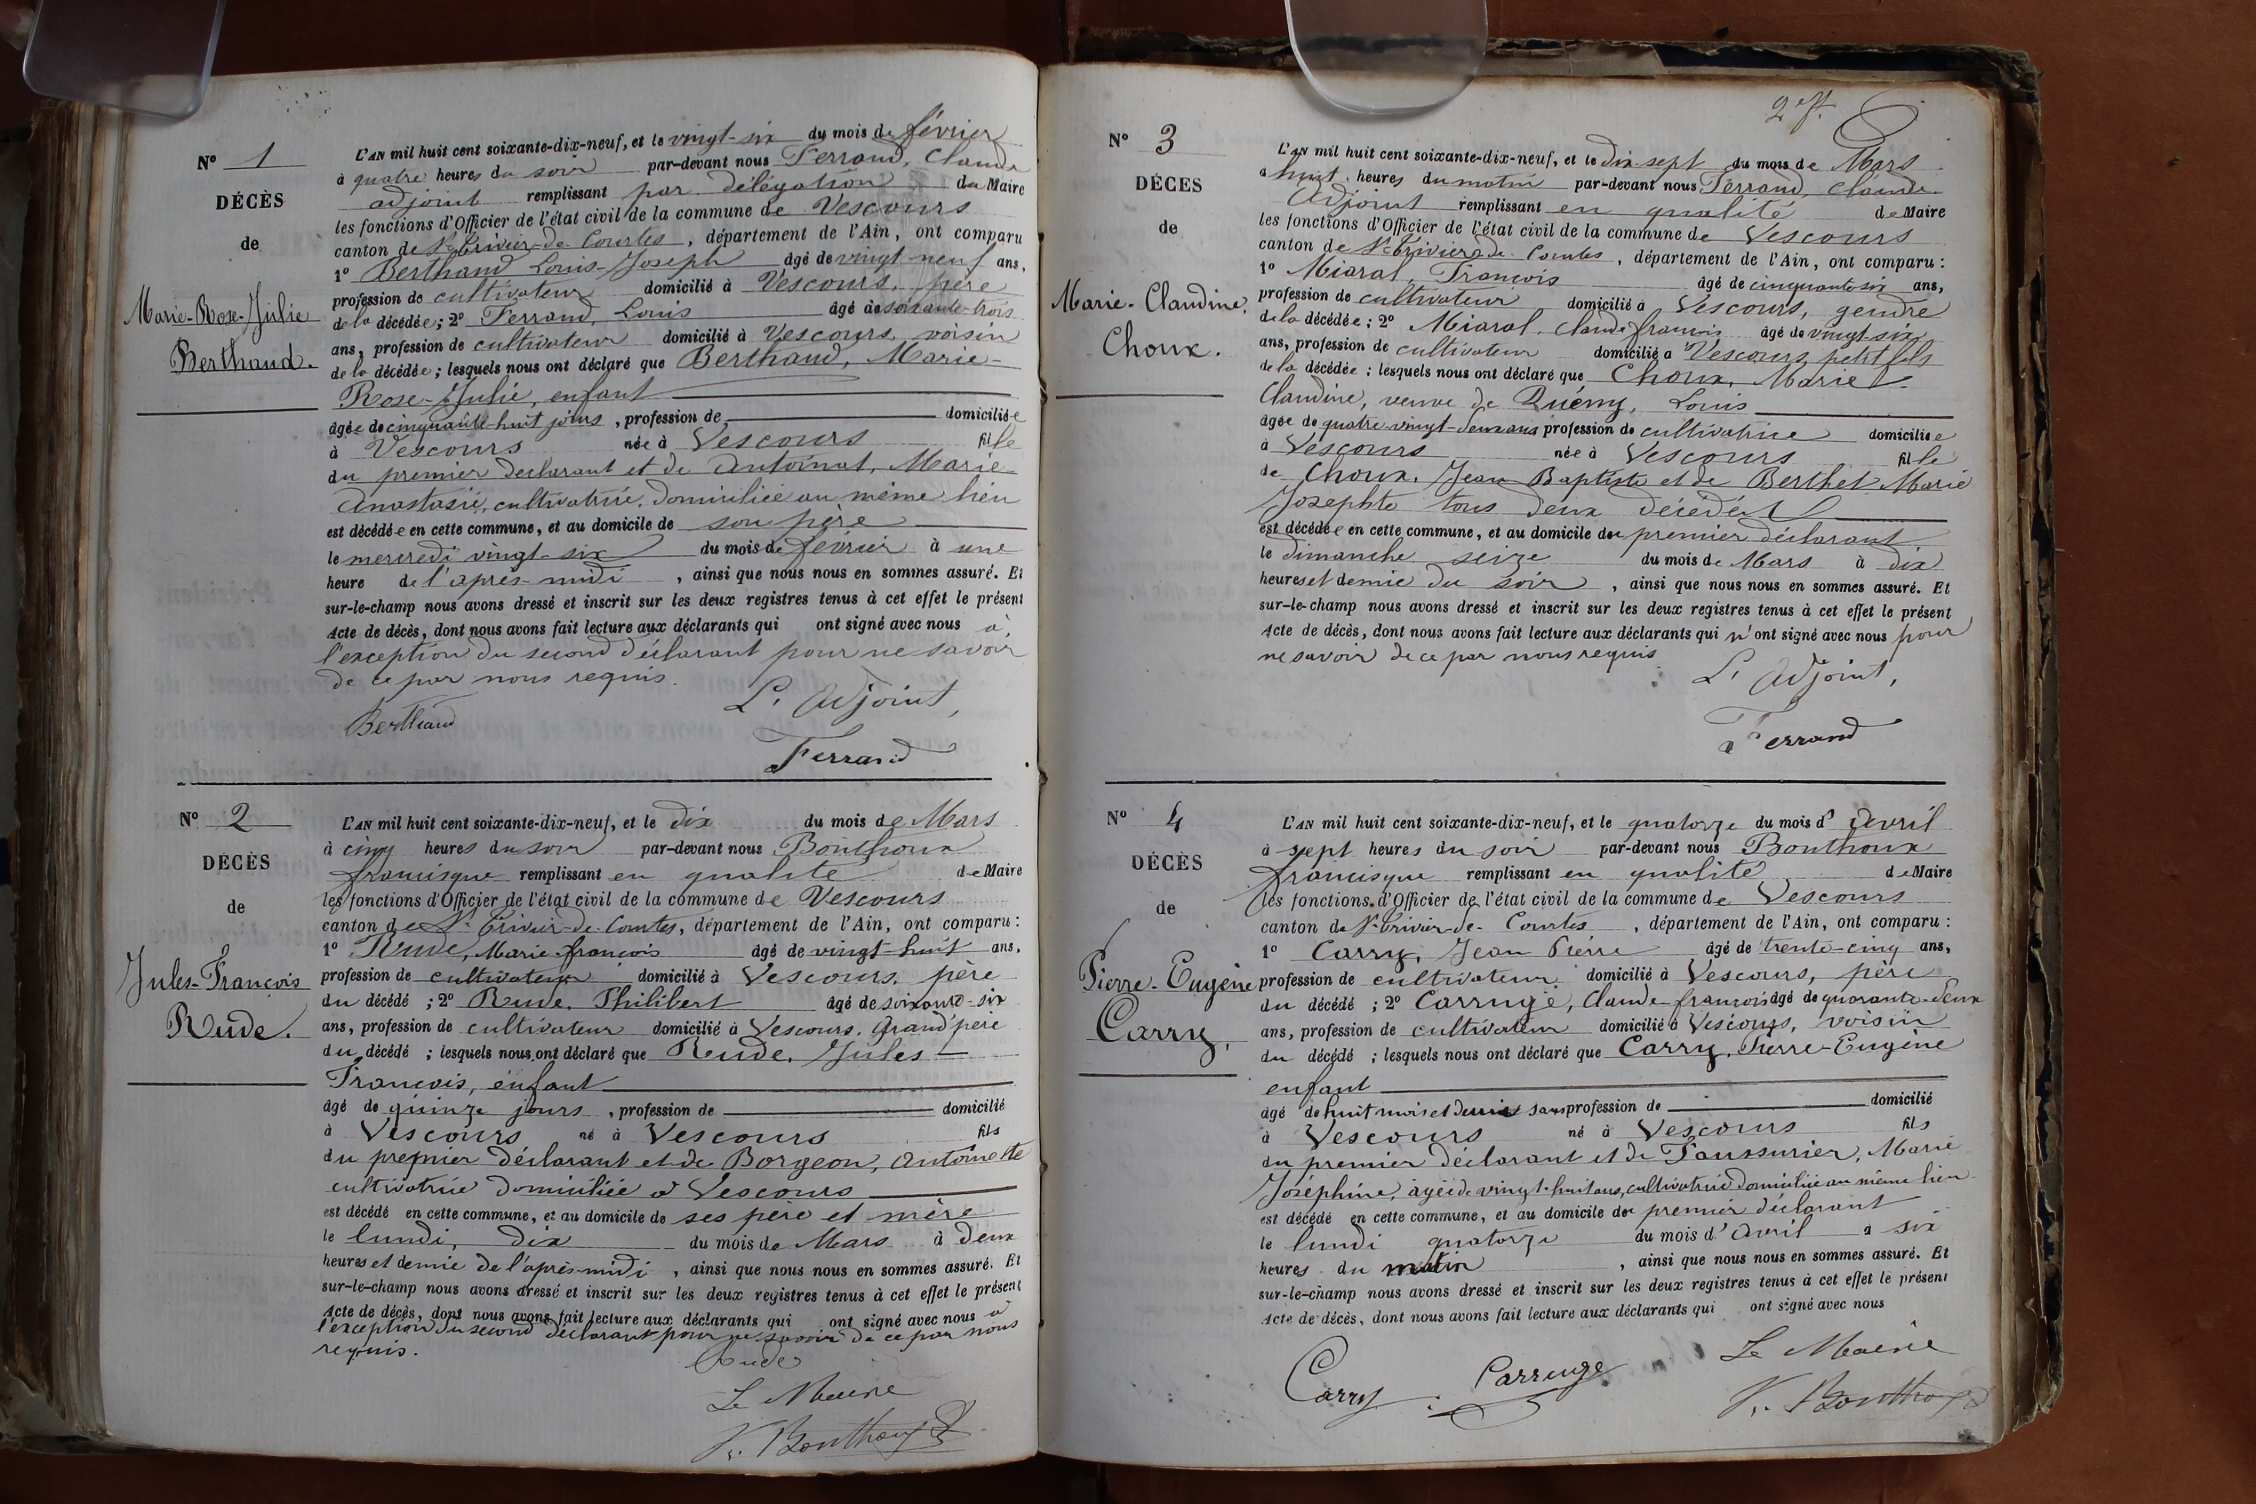 N° 1
DÉCÈS
de
Marie-Rose-Julie
Berthaud.
L'AN mil huit cent soixante-dix-neuf, et le vingt-six du mois de février
à quatre heures du soir par-devant nous Ferrand, Claude
adjoint remplissant par délégation du Maire
les fonctions d'Officier de l'état civil de la commune de Vescours
canton de St Trivier-de-Courtes, département de l'Ain, ont comparu
1° Berthaud Louis-Joseph âgé de vingt-neuf ans,
profession de cultivateur domicilié à Vescours, père
de la décédée; 2° Ferrand, Louis âgé de soixante-trois
ans, profession de cultivateur domicilié à Vescours, voisin
de la décédée; lesquels nous ont déclaré que Berthaud, Marie-
Rose-Julie, enfant
âgée de cinquante-huit jours, profession de domiciliée
à Vescours née à Vescours fille
du premier déclarant et de Antoinat, Marie
Anastasie, cultivatrice, domiciliée au même lieu
est décédée en cette commune, et au domicile de son père
le mercredi vingt-six du mois de février à une
heure de l'après-midi, ainsi que nous nous en sommes assuré. Et
sur-le-champ nous avons dressé et inscrit sur les deux registres tenus à cet effet le présent
Acte de décès, dont nous avons fait lecture aux déclarants qui ont signé avec nous à
l'exception du second déclarant pour ne savoir
de ce par nous requis.
L'Adjoint,
Berthaud
Ferrand
N° 2
DÉCÈS
de
Jules-François
Rude.
L'AN mil huit cent soixante-dix-neuf, et le dix du mois de Mars
à cinq heures du soir par-devant nous Bouthoux
francisque remplissant en qualité de Maire
les fonctions d'Officier de l'état civil de la commune de Vescours
canton de St Trivier-de-Courtes, département de l'Ain, ont comparu :
1° Rude, Marie-françois âgé de vingt-huit ans,
profession de cultivateur domicilié à Vescours, père
du décédé ; 2° Rude, Philibert âgé de soixante-six
ans, profession de cultivateur domicilié à Vescours, Grand'père
du décédé ; lesquels nous ont déclaré que Rude, Jules
François, enfant
âgé de quinze jours, profession de domicilié
à Vescours né à Vescours fils
du premier déclarant et de Borgeon, Antoinette
cultivatrice domiciliée à Vescours
est décédé en cette commune, et au domicile de ses père et mère
le lundi, dix du mois de Mars à deux
heures et demie de l'après-midi, ainsi que nous nous en sommes assuré. Et
sur-le-champ nous avons dressé et inscrit sur les deux registres tenus à cet effet le présent
Acte de décès, dont nous avons fait lecture aux déclarants qui ont signé avec nous à
l'exception du second déclarant pour ne savoir de ce par nous
requis.
Rude
Le Maire
F. Bouthoux
2e f.
N° 3
DÉCÈS
de
Marie-Claudine
Choux.
L'AN mil huit cent soixante-dix-neuf, et le dix-sept du mois de Mars
à huit heures du matin par-devant nous Ferrand, Claude
Adjoint remplissant en qualité de Maire
les fonctions d'Officier de l'état civil de la commune de Vescours
canton de St Trivier-de-Courtes, département de l'Ain, ont comparu :
1° Miaral, François âgé de cinquante six ans,
profession de cultivateur domicilié à Vescours, gendre
de la décédée ; 2° Miaral, Claude françois âgé de vingt-six
ans, profession de cultivateur domicilié à Vescours, petit fils
de la décédée ; lesquels nous ont déclaré que Choux, Marie
Claudine, veuve de Quémy, Louis
âgée de quatre-vingt-deux ans profession de cultivatrice domiciliée
à Vescours née à Vescours fille
de Choux, Jean Baptiste et de Berthet Marie
Josephte tous deux décédés
est décédée en cette commune, et au domicile du premier déclarant
le dimanche seize du mois de Mars à dix
heures et demie du soir, ainsi que nous nous en sommes assuré. Et
sur-le-champ nous avons dressé et inscrit sur les deux registres tenus à cet effet le présent
Acte de décès, dont nous avons fait lecture aux déclarants qui n'ont signé avec nous pour
ne savoir de ce par nous requis
L'Adjoint,
Ferrand
N° 4
DÉCÈS
de
Pierre-Eugène
Carry,
L'AN mil huit cent soixante-dix-neuf, et le quatorze du mois d'Avril
à sept heures du soir par-devant nous Bouthoux
francisque remplissant en qualité de Maire
les fonctions d'Officier de l'état civil de la commune de Vescours
canton de St Trivier-de-Courtes, département de l'Ain, ont comparu :
1° Carry, Jean Pierre âgé de trente-cinq ans,
profession de cultivateur domicilié à Vescours, père
du décédé ; 2° Carruge, Claude-françois âgé de quarante-deux
ans, profession de cultivateur domicilié à Vescours, voisin
du décédé ; lesquels nous ont déclaré que Carry, Pierre-Eugène
enfant
âgé de huit mois et demi sans profession de domicilié
à Vescours né à Vescours fils
du premier déclarant et de Faussurier, Marie
Joséphine, âgée de vingt-huit ans, cultivatrice domiciliée au même lieu
est décédé en cette commune, et au domicile du premier déclarant
le lundi quatorze du mois d'Avril à six
heures du matin, ainsi que nous nous en sommes assuré. Et
sur-le-champ nous avons dressé et inscrit sur les deux registres tenus à cet effet le présent
Acte de décès, dont nous avons fait lecture aux déclarants qui ont signé avec nous
Le Maire
Carry Carruge
F. Bouthoux